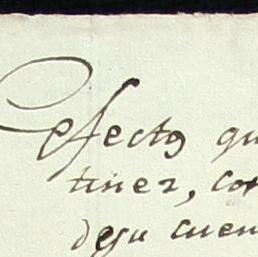 efectos qu
tinez, con
de su cuen